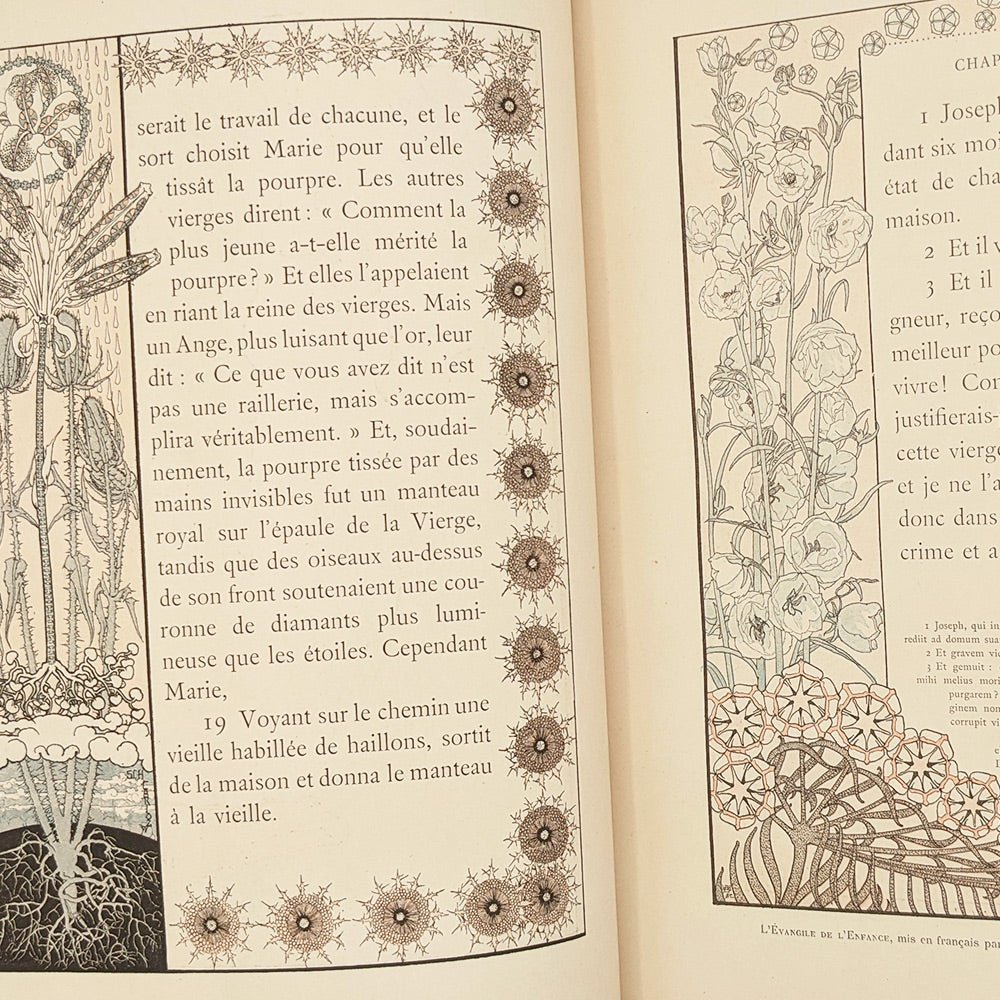 serait le travail de chacune, et le
sort choisit Marie pour qu'elle
tissât la pourpre. Les autres
vierges dirent : « Comment la
plus jeune a-t-elle mérité la
pourpre ? » Et elles l'appelaient
en riant la reine des vierges. Mais
un Ange, plus luisant que l'or, leur
dit : « Ce que vous avez dit n'est
pas une raillerie, mais s'accom-
plira véritablement. » Et, soudai-
nement, la pourpre tissée par des
mains invisibles fut un manteau
royal sur l'épaule de la Vierge,
tandis que des oiseaux au-dessus
de son front soutenaient une cou-
ronne de diamants plus lumi-
neuse que les étoiles. Cependant
Marie,
19 Voyant sur le chemin une
vieille habillée de haillons, sortit
de la maison et donna le manteau
à la vieille.
CHAP
1 Joseph
dant six moi
état de cha
maison.
2 Et il v
3 Et il
gneur, reço
meilleur po
vivre! Com
justifierais-
cette vierge
et je ne l'a
donc dans
crime et a
1 Joseph, qui in
rediit ad domum sua
2 Et gravem vid
3 Et gemuit :
mihi melius mori
purgarem?
ginem non
corrupit vi
L'ÉVANGILE DE L'ENFANCE, mis en français par